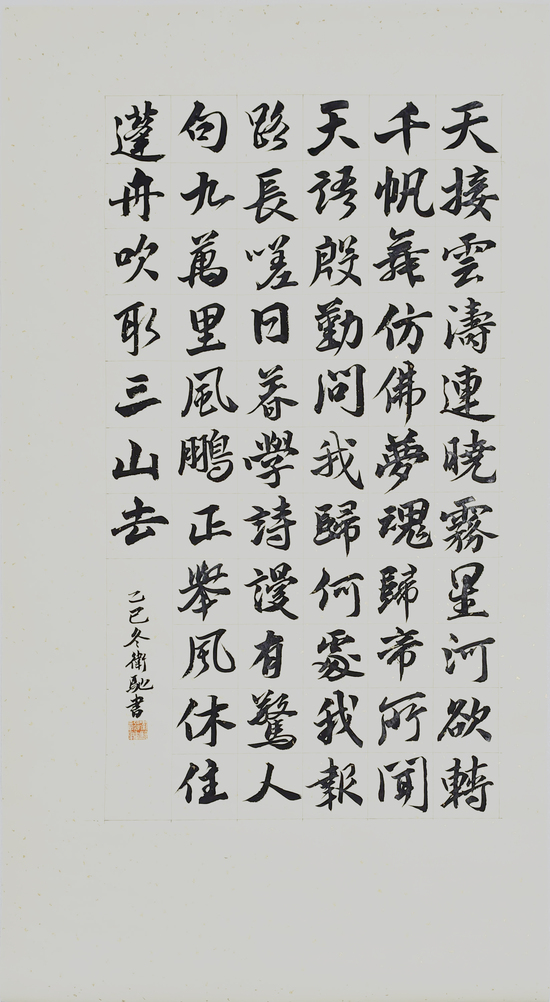 天接雲濤連曉霧星河欲轉
千帆舞仿佛夢魂歸帝所聞
天語殷勤問我歸何處我報
路長嗟日暮學詩謾有驚人
句九萬里風鵬正舉風休住
蓬舟吹取三山去
乙巳冬衛馳書